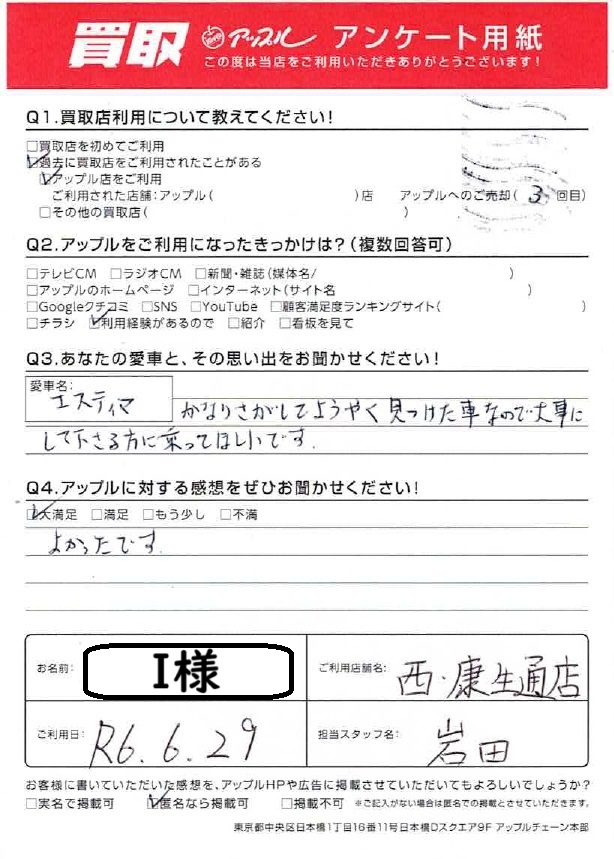 買取 アップル アンケート用紙
この度は当店をご利用いただきありがとうございます!
Q1.買取店利用について教えてください!
□買取店を初めてご利用
☑過去に買取店をご利用されたことがある
☑アップル店をご利用
ご利用された店舗:アップル( )店 アップルへのご売却( 3 回目)
□その他の買取店( )
Q2.アップルをご利用になったきっかけは?(複数回答可)
□テレビCM □ラジオCM □新聞・雑誌(媒体名/ )
□アップルのホームページ □インターネット(サイト名 )
□Googleクチコミ □SNS □YouTube □顧客満足度ランキングサイト( )
□チラシ ☑利用経験があるので □紹介 □看板を見て
Q3.あなたの愛車と、その思い出をお聞かせください!
愛車名:
エスティマ かなりさがしてようやく見つけた車なので大事に
して下さる方に乗ってほしいです.
Q4.アップルに対する感想をぜひお聞かせください!
☑大満足 □満足 □もう少し □不満
よかったです.
お名前: I様 ご利用店舗名: 西・康生通店
ご利用日: R6.6.29 担当スタッフ名: 岩田
お客様に書いていただいた感想を、アップルHPや広告に掲載させていただいてもよろしいでしょうか?
□実名で掲載可 ☑匿名なら掲載可 □掲載不可 ※ご記入がない場合は匿名での掲載とさせていただきます。
東京都中央区日本橋1丁目16番11号日本橋Dスクエア9F アップルチェーン本部